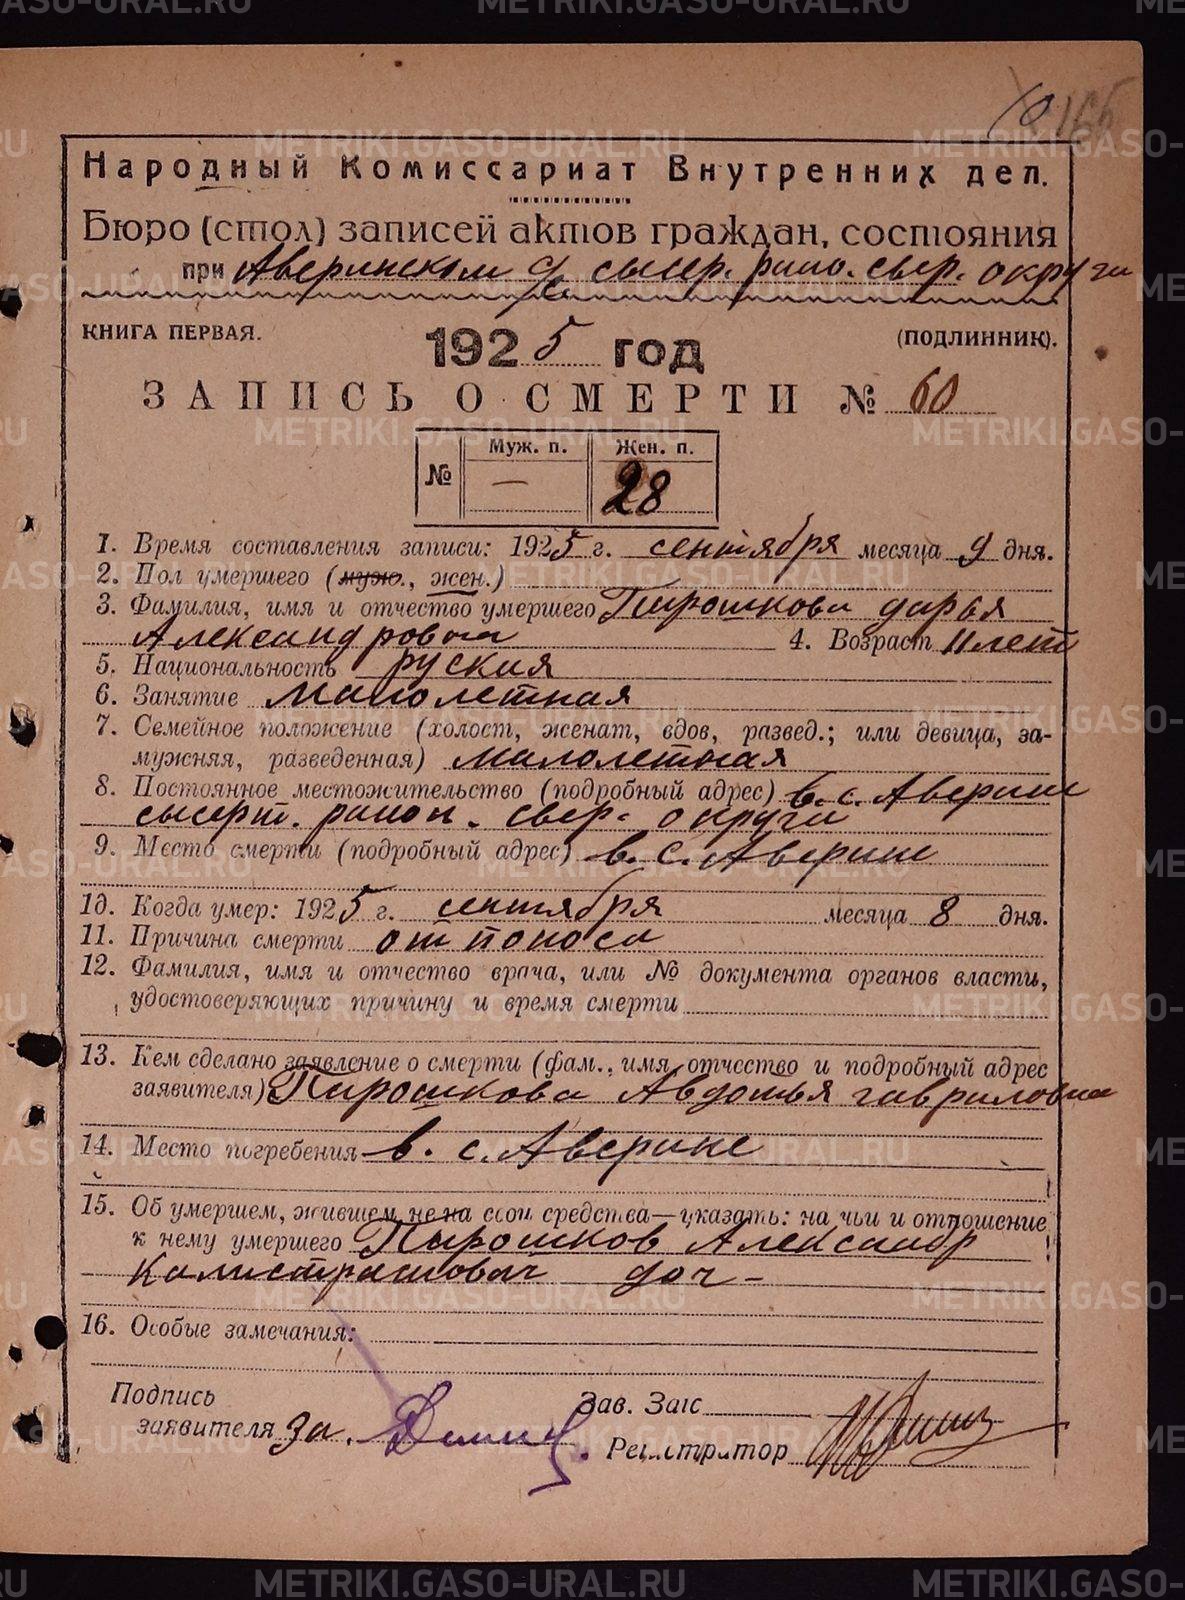 165
Народный Комиссариат Внутренних дел.
Бюро (стол) записей актов граждан, состояния
при Аверинском с/с сысер. райо. свер. округи
КНИГА ПЕРВАЯ. 1925 год (ПОДЛИННИК).
ЗАПИСЬ О СМЕРТИ № 60
№ Муж. п. — Жен. п. 28
1. Время составления записи: 1925 г. сентября месяца 9 дня.
2. Пол умершего (муж., жен.)
3. Фамилия, имя и отчество умершего Пирошкова дарья
Александровна 4. Возраст 11 лет
5. Национальность руския
6. Занятие малолетная
7. Семейное положение (холост, женат, вдов, развед.; или девица, за-
мужняя, разведенная) малолетная
8. Постоянное местожительство (подробный адрес) в. с. Аверине
сысерт. район. свер. округи
9. Место смерти (подробный адрес) в. с. Аверине
10. Когда умер: 1925 г. сентября месяца 8 дня.
11. Причина смерти от поноса
12. Фамилия, имя и отчество врача, или № документа органов власти,
удостоверяющих причину и время смерти
13. Кем сделано заявление о смерти (фам., имя, отчество и подробный адрес
заявителя) Пирошкова Авдотья гавриловна
14. Место погребения в. с. Аверине
15. Об умершем, жившем не на свои средства—указать: на чьи и отношение
к нему умершего Пырошков Александр
Калистратовач доч-
16. Особые замечания:
Подпись Зав. Загс
заявителя за. Регистратор
METRIKI.GASO-URAL.RU